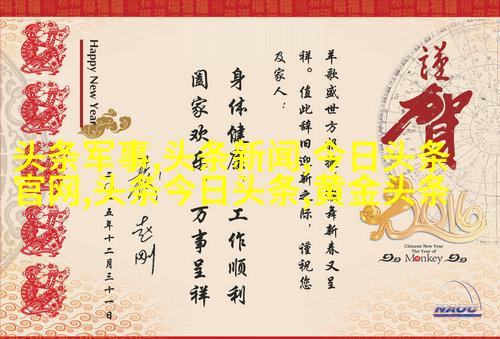 頭条军事,头条新闻,今日头条
官网,头条今日头条,黄金头条
Happy New Year
謹
賀
羊歌盛世方
舞新春又呈
祥。值此辞旧迎新之际，谨祝您
及家人：
身体健康
工作顺利
阖家欢乐
万事呈祥
赵刚
二
五年十二月三十一日
2016
Chinese New Year
The Year of
Monkey
NAOC